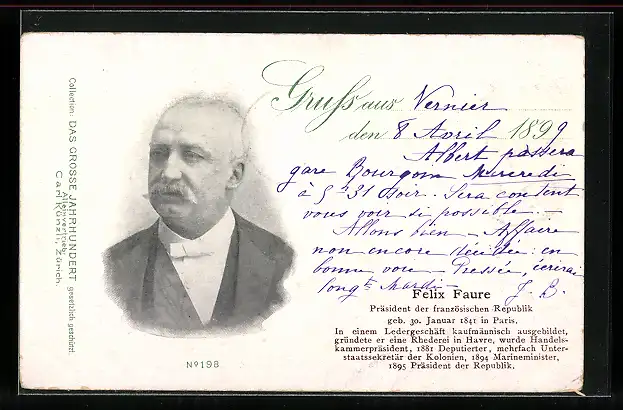 Collection: DAS GROSSE JAHRHUNDERT gesetzlich geschützt.
Alleinvertrieb:
Carl Künzli, Zürich.
Gruss aus Vernier
den 8 Avril 1899
Albert passera
gare Bourgoin Mercredi
à 5h 31 soir. Sera content
vous voir si possible. —
Allons bien – Affaire
non encore décidée: en
bonne voie – Pressée, écrirai
longt Mardi –
J. B.
Felix Faure
Präsident der französischen Republik
geb. 30. Januar 1841 in Paris.
In einem Ledergeschäft kaufmännisch ausgebildet,
gründete er eine Rhederei in Havre, wurde Handels-
kammerpräsident, 1881 Deputierter, mehrfach Unter-
staatssekretär der Kolonien, 1894 Marineminister,
1895 Präsident der Republik.
No 198